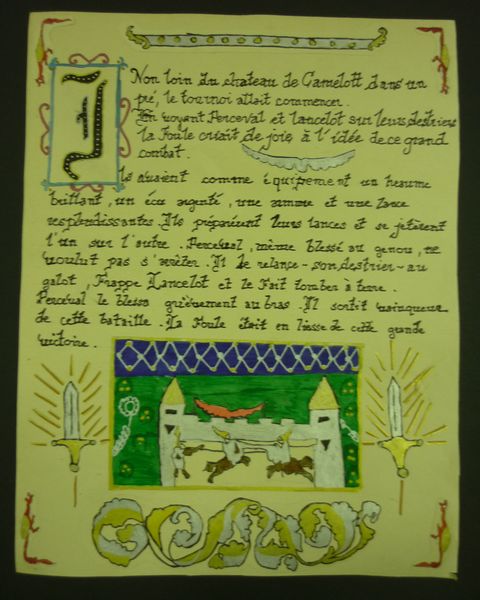 Non loin du chateau de Camelott dans un
pré, le tournoi allait commencer.
En voyant Perceval et lancelot sur leurs destriers
la foule criait de joie à l'idée de ce grand
combat.
Ils avaient comme équipement un heaume
brillant, un écu argenté, une armure et une lance
resplendissantes. Ils préparèrent leurs lances et se jetèrent
l'un sur l'autre. Perceval, même blessé au genou, ne
voulut pas s'arrêter. Il le relance - son destrier - au
galot, frappe Lancelot et le fait tomber à terre.
Perceval le blessa grièvement au bras. Il sortit vainqueur
de cette bataille. La foule était en liesse de cette grande
victoire.